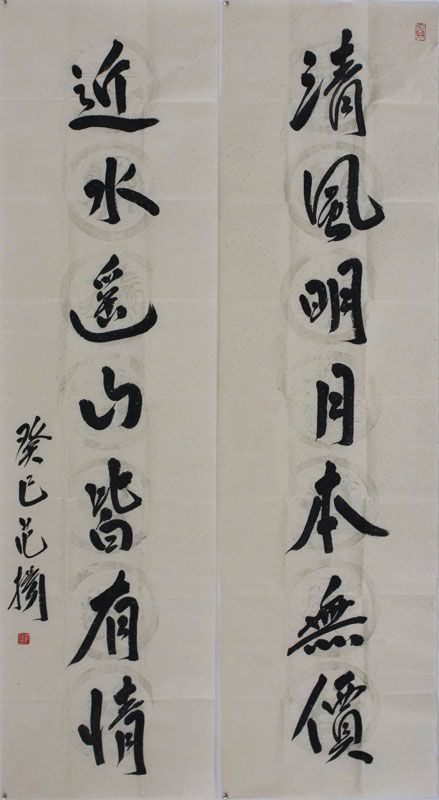 清風明月本無價
近水遙山皆有情
癸巳范